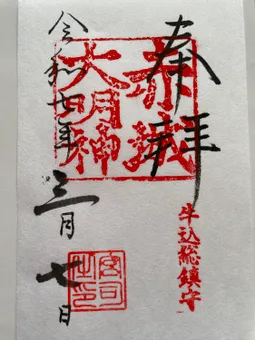 奉拝
赤城
大明神
牛込総鎮守
令和七年
三月七日
宮司
之印